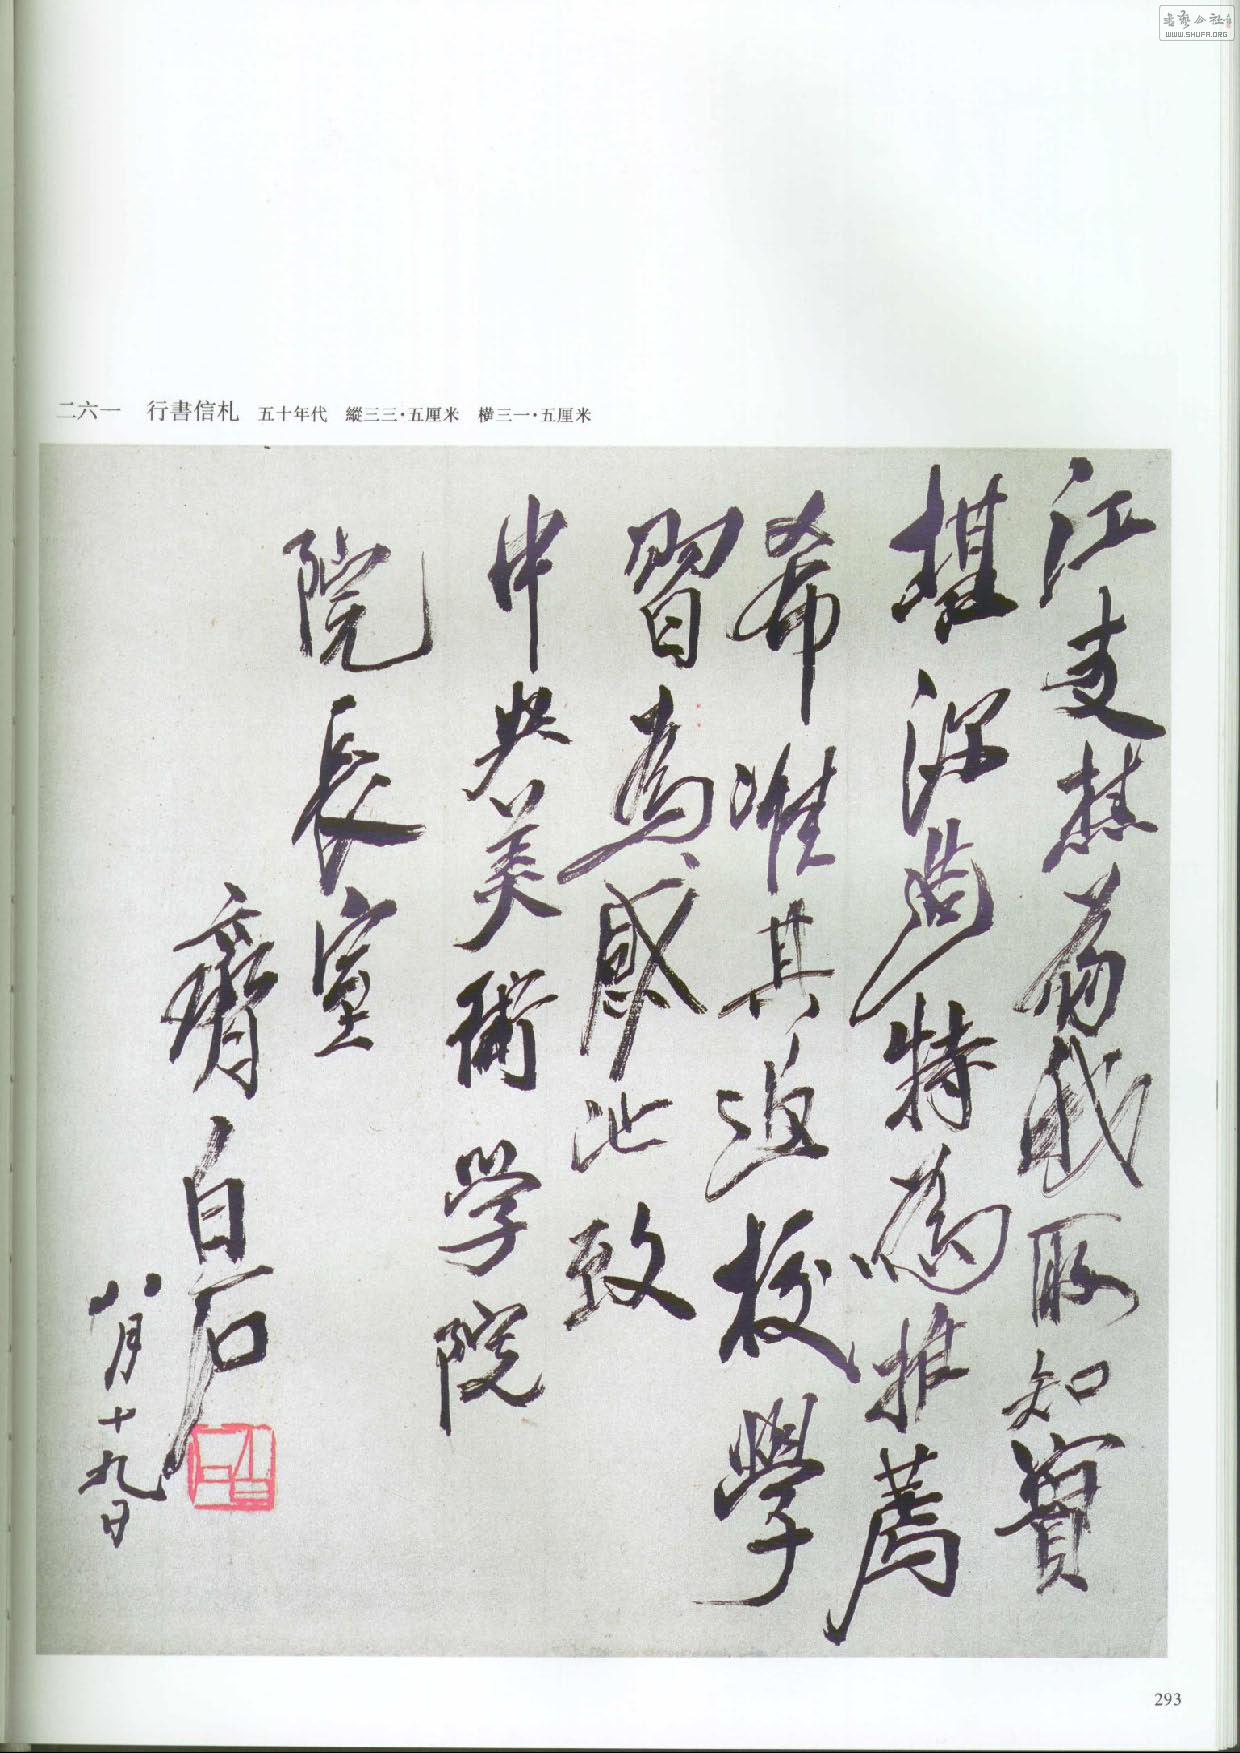 書藝公社
WWW.SHUFA.ORG
二六一 行書信札 五十年代 縱三三·五厘米 橫三一·五厘米
江支樵為我所知實
堪深造特為推薦
希准其返校學
習為感此致
中央美術学院
院長室
齊白石
八月十九日
293